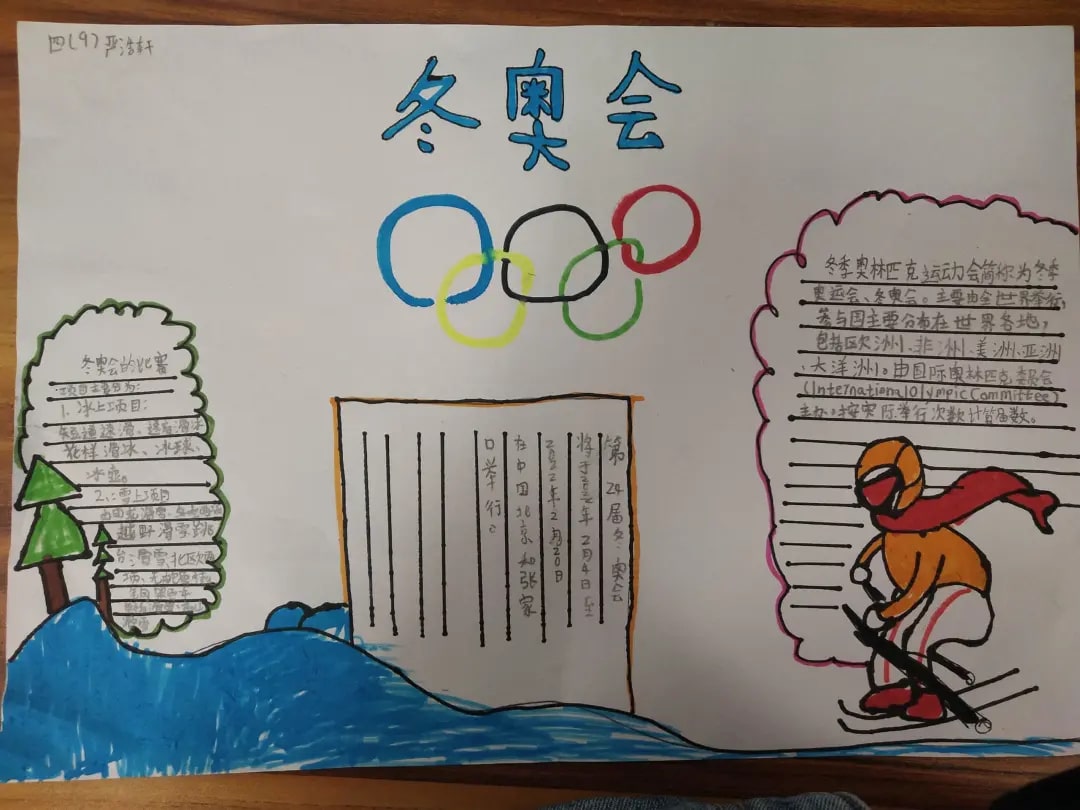 四(9) 严浩轩
冬奥会
冬奥会的比赛
项目主要分为:
1. 冰上项目:
短道速滑、速度滑冰
花样滑冰、冰球、
冰壶。
2、雪上项目
自由式滑雪、
越野滑雪、跳
台滑雪、北欧两
项、无舵雪橇
第24届冬奥会
将于2022年2月4日至
2022年2月20日
在中国北京和张家
口举行。
冬季奥林匹克运动会简称为冬季
奥运会、冬奥会。主要由全世界举行,
参与国主要分布在世界各地,
包括欧洲、非洲、美洲、亚洲
、大洋洲。由国际奥林匹克委员会
(InternationalOlympicCommittee)
主办。按实际举行次数计算届数。